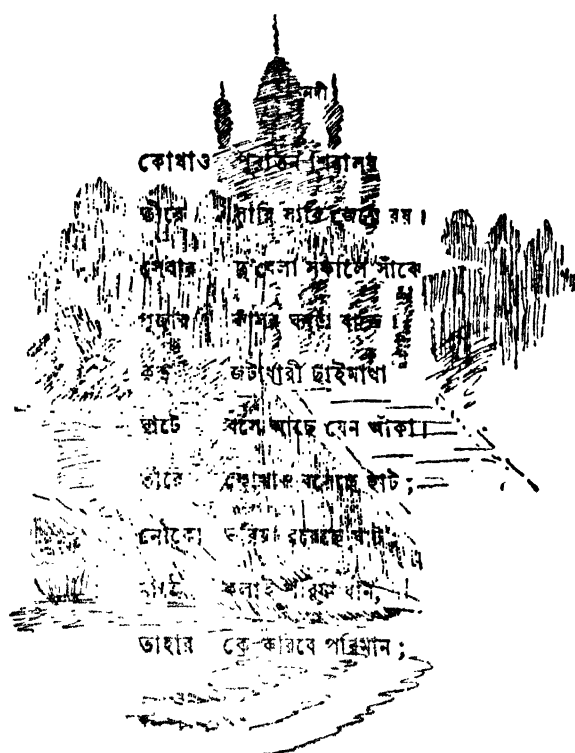 নদী
কোথাও পুরাতন শিবালয়
তীরে সারি সারি জেগে রয়।
সেবার দু'বেলা সকালে সাঁঝে
পূজার কাঁসর ঘণ্টা বাজে
কত জটাধারী ছাইমাখা
ঘাটে বসে আছে যেন আঁকা।
তীরে কোথাও বসেছে হাট;
নৌকো ভরিয়া রয়েছে ঘাট,
মাঠে কলাই সরিষা ধান,
তাহার কে করিবে পরিমান;